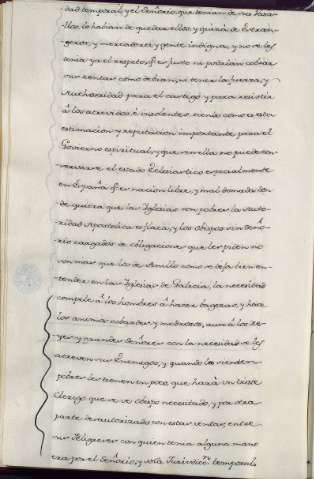 dad temporal, y el Señorío, que tenian de sus Vasa-
llos, lo habian de quedar ellos y quizá de Estran-
geros, y mercaderes y gente indigna, y no se les
tenia ya el respeto, q.e es justo ni podrian cobrar
sus rentas como debian, ni tener la fuerza, y
Authoridad para el castigo y para resistir
á los atrevidos, é insolentes siendo como es esta
estimacion y reputacion importante para el
Govierno espiritual, y que sin ella no puede con-
servarse el estado Eclesiastico especialmente
en España q.e es nacion libre, y mal domada don-
de quiera que las Iglesias son pobres la Auto-
ridad Apostolica es flaca, y los obispos sin Seño-
río cargados de obligaciones que les piden no
son mas que los de Anillo como se deja bien en-
tender en las Iglesias de Galicia, la necesidad
compele á los hombres á hacer bagezas, y hace
los animos cobardes y medrosos, aun á los Re-
yes y grandes Señores con la necesidad se les
atreven sus Enemigos, y quando los sienten
pobres les tienen en poco que hará un triste
Clerigo que se ve obispo necesitado, y por otra
parte desautorizado con estar ventas, entre
sus Feligreses con quien tenia alguna mano
era por el Señorío, y esta Jurisdicc.n temporal